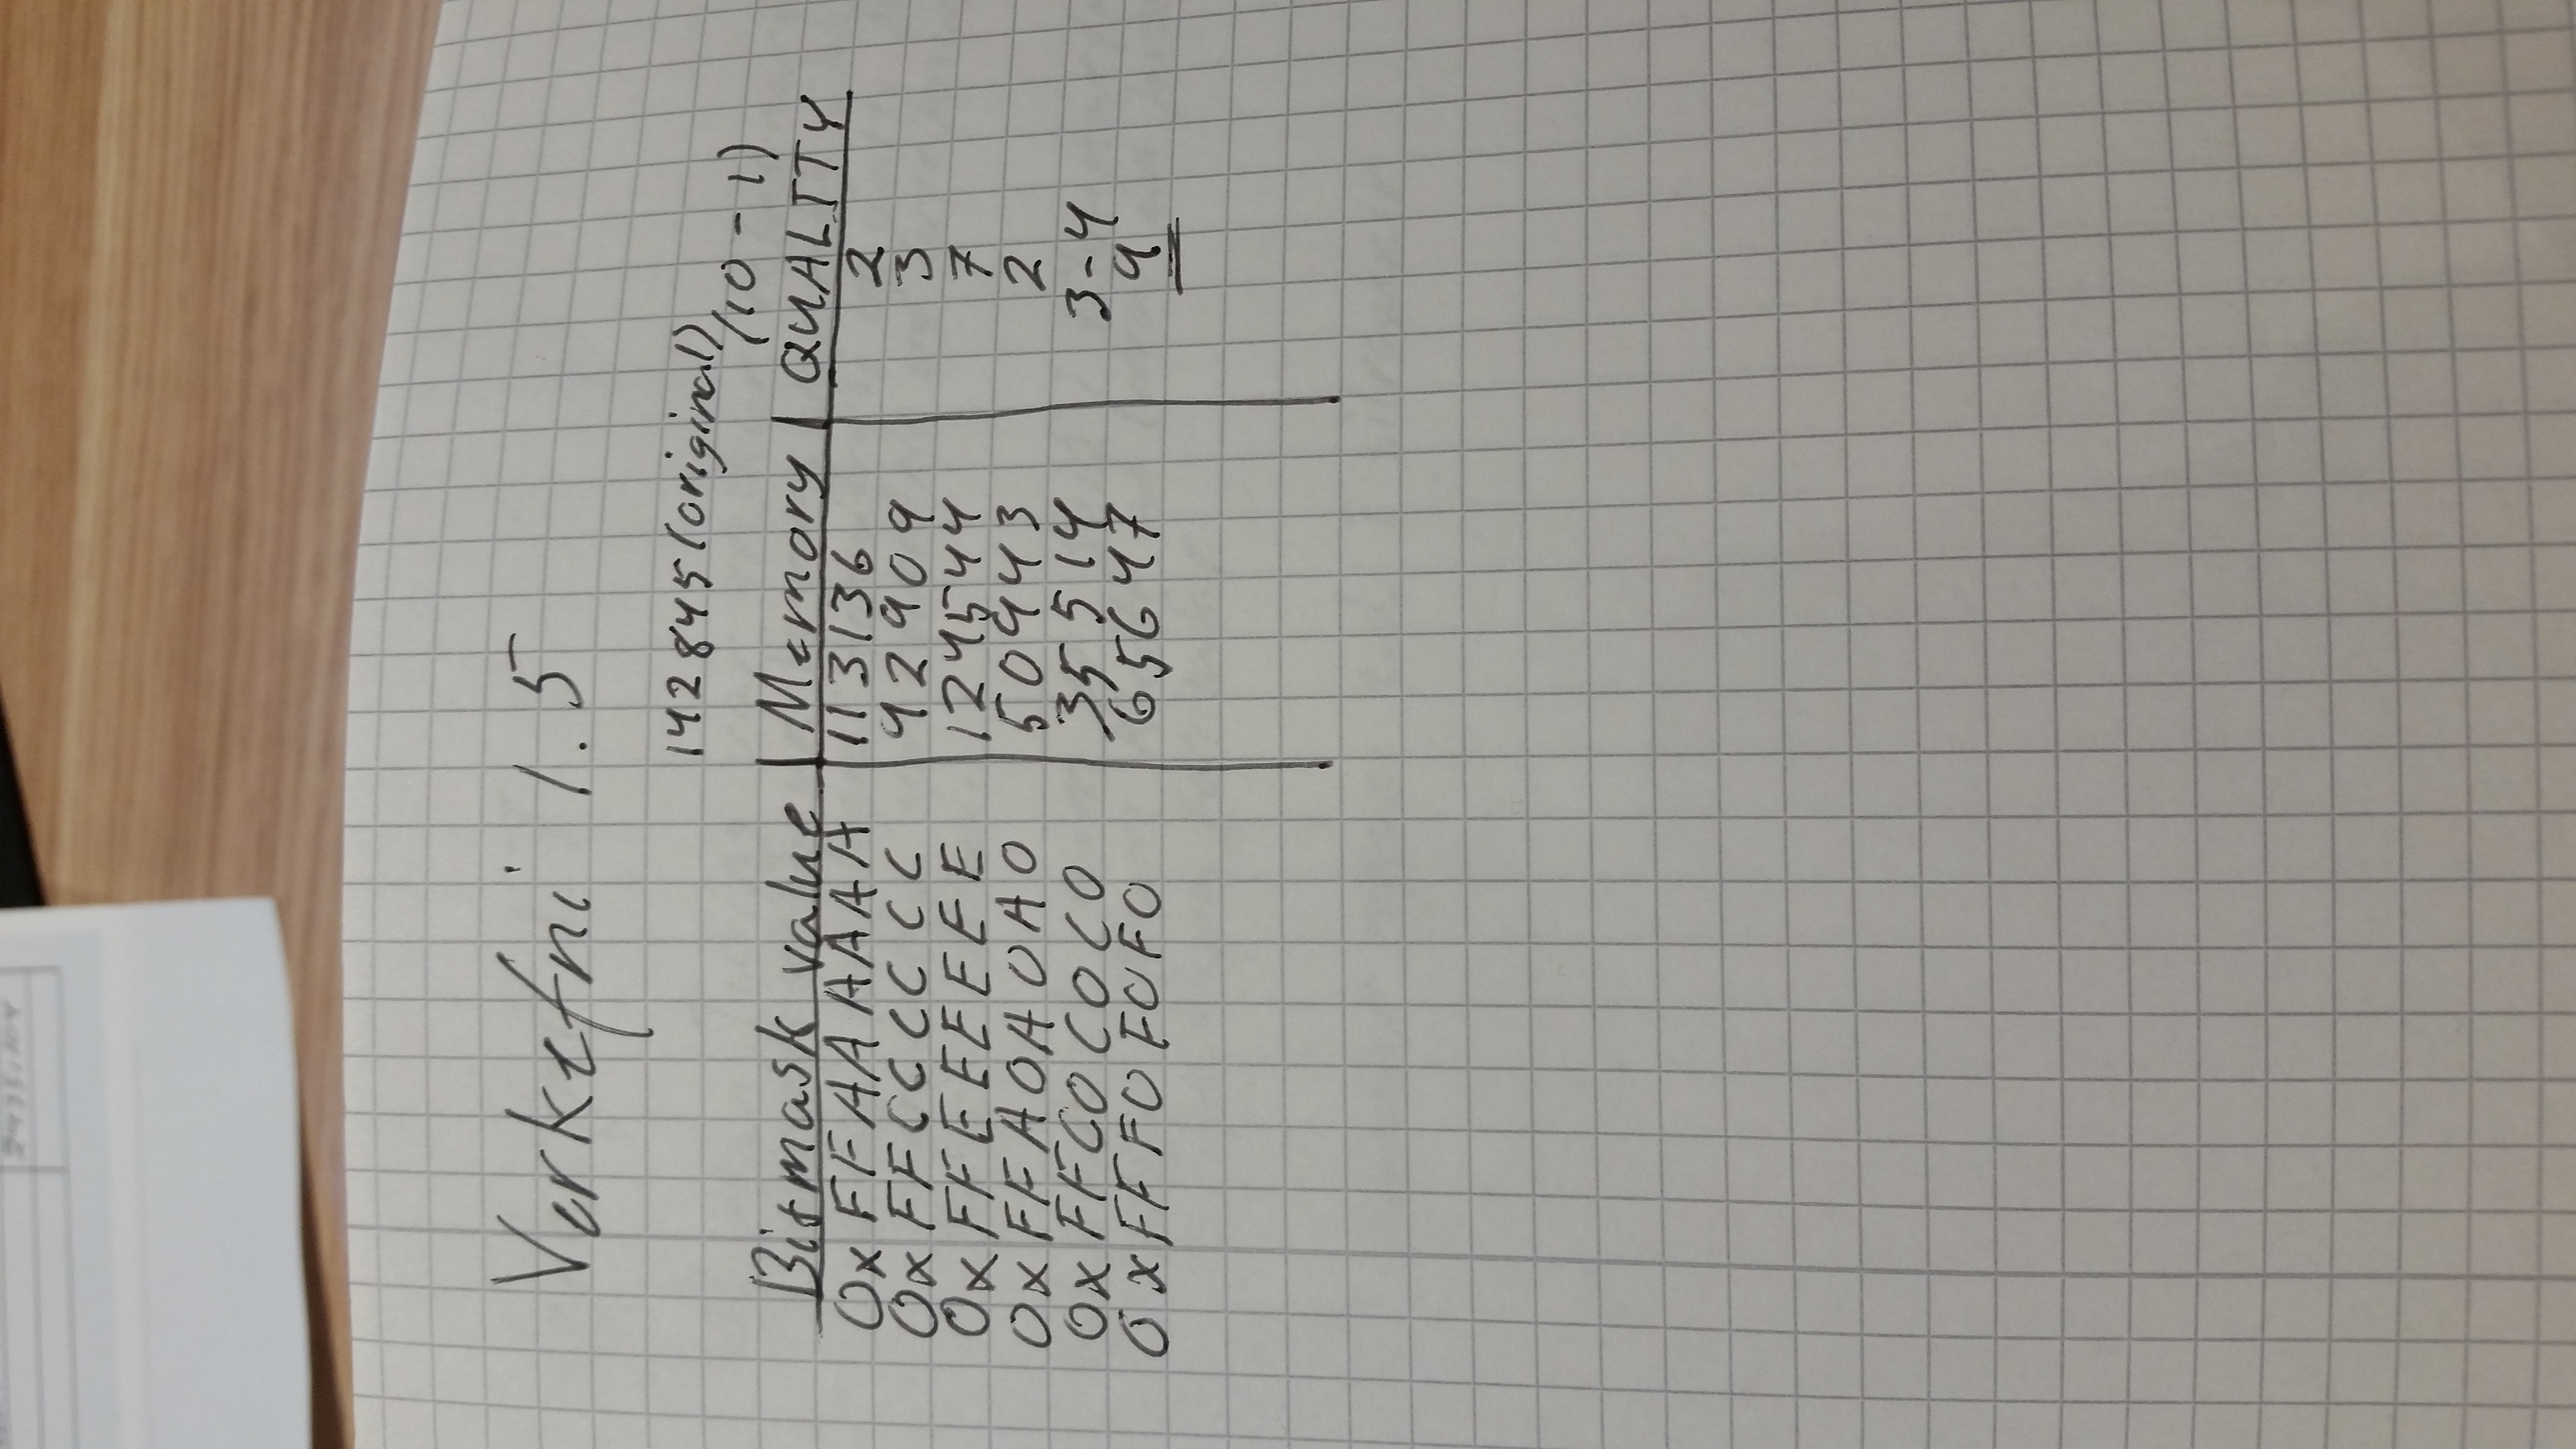 Verkefni 1.5
142845 (original)
(10 - 1)
Bitmask value | Memory | QUALITY
0xFFAAAAAA 113136 2
0xFFCCCCCC 92909 3
0xFFEEEEEE 124544 7
0xFFA0A0A0 50943 2
0xFFC0C0C0 35514 3-4
0xFFF0F0F0 65647 9